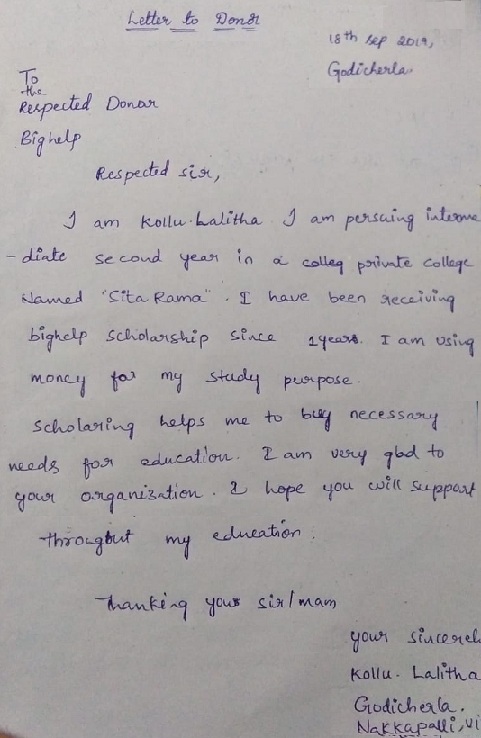 Letter to Donor
18th Sep 2019,
Godicherla.
To
the
Respected Donar
Bighelp
Respected sir,
I am Kollu. Lalitha. I am persuing interme
- diate second year in a colleg private college
Named "Sita Rama". I have been receiving
bighelp scholarship since 2years. I am using
money for my study purpose.
Scholaring helps me to buy necessary
needs for education. I am very glad to
your organization. I hope you will support
throughut my education.
Thanking your sir/mam
your sincerel
Kollu. Lalitha
Godicherla.
Nakkapalli, vi